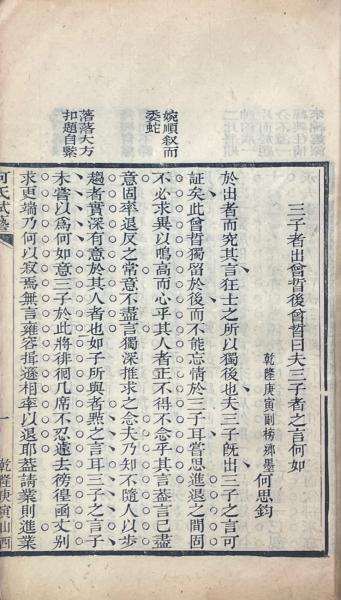 婉順叙而
委蛇
落落大方
扣題自緊
三子者出曾晳後曾晳曰夫三子者之言何如
乾隆庚寅副榜鄉墨
何思鈞
於出者而究其言狂士之所以獨後也夫三子旣出三子之言可
証矣此曾晳獨留於後而不能忘情於三子耳嘗思進退之間固
不必求異以鳴高而心乎其人者正不得不念乎其言葢言已盡
意固率退反之常意不盡言獨深推求之念夫乃知不隨人以步
趨者實深有意於其人者也如子所與者㸃之言耳三子之言子
未嘗以為何如意三子於此將徘徊几席不忍遠去徬徨函丈別
求更端乃何以寂焉無言雍容揖遜相率以退耶葢請業則進業
何氏試藝
一
乾隆庚寅山西